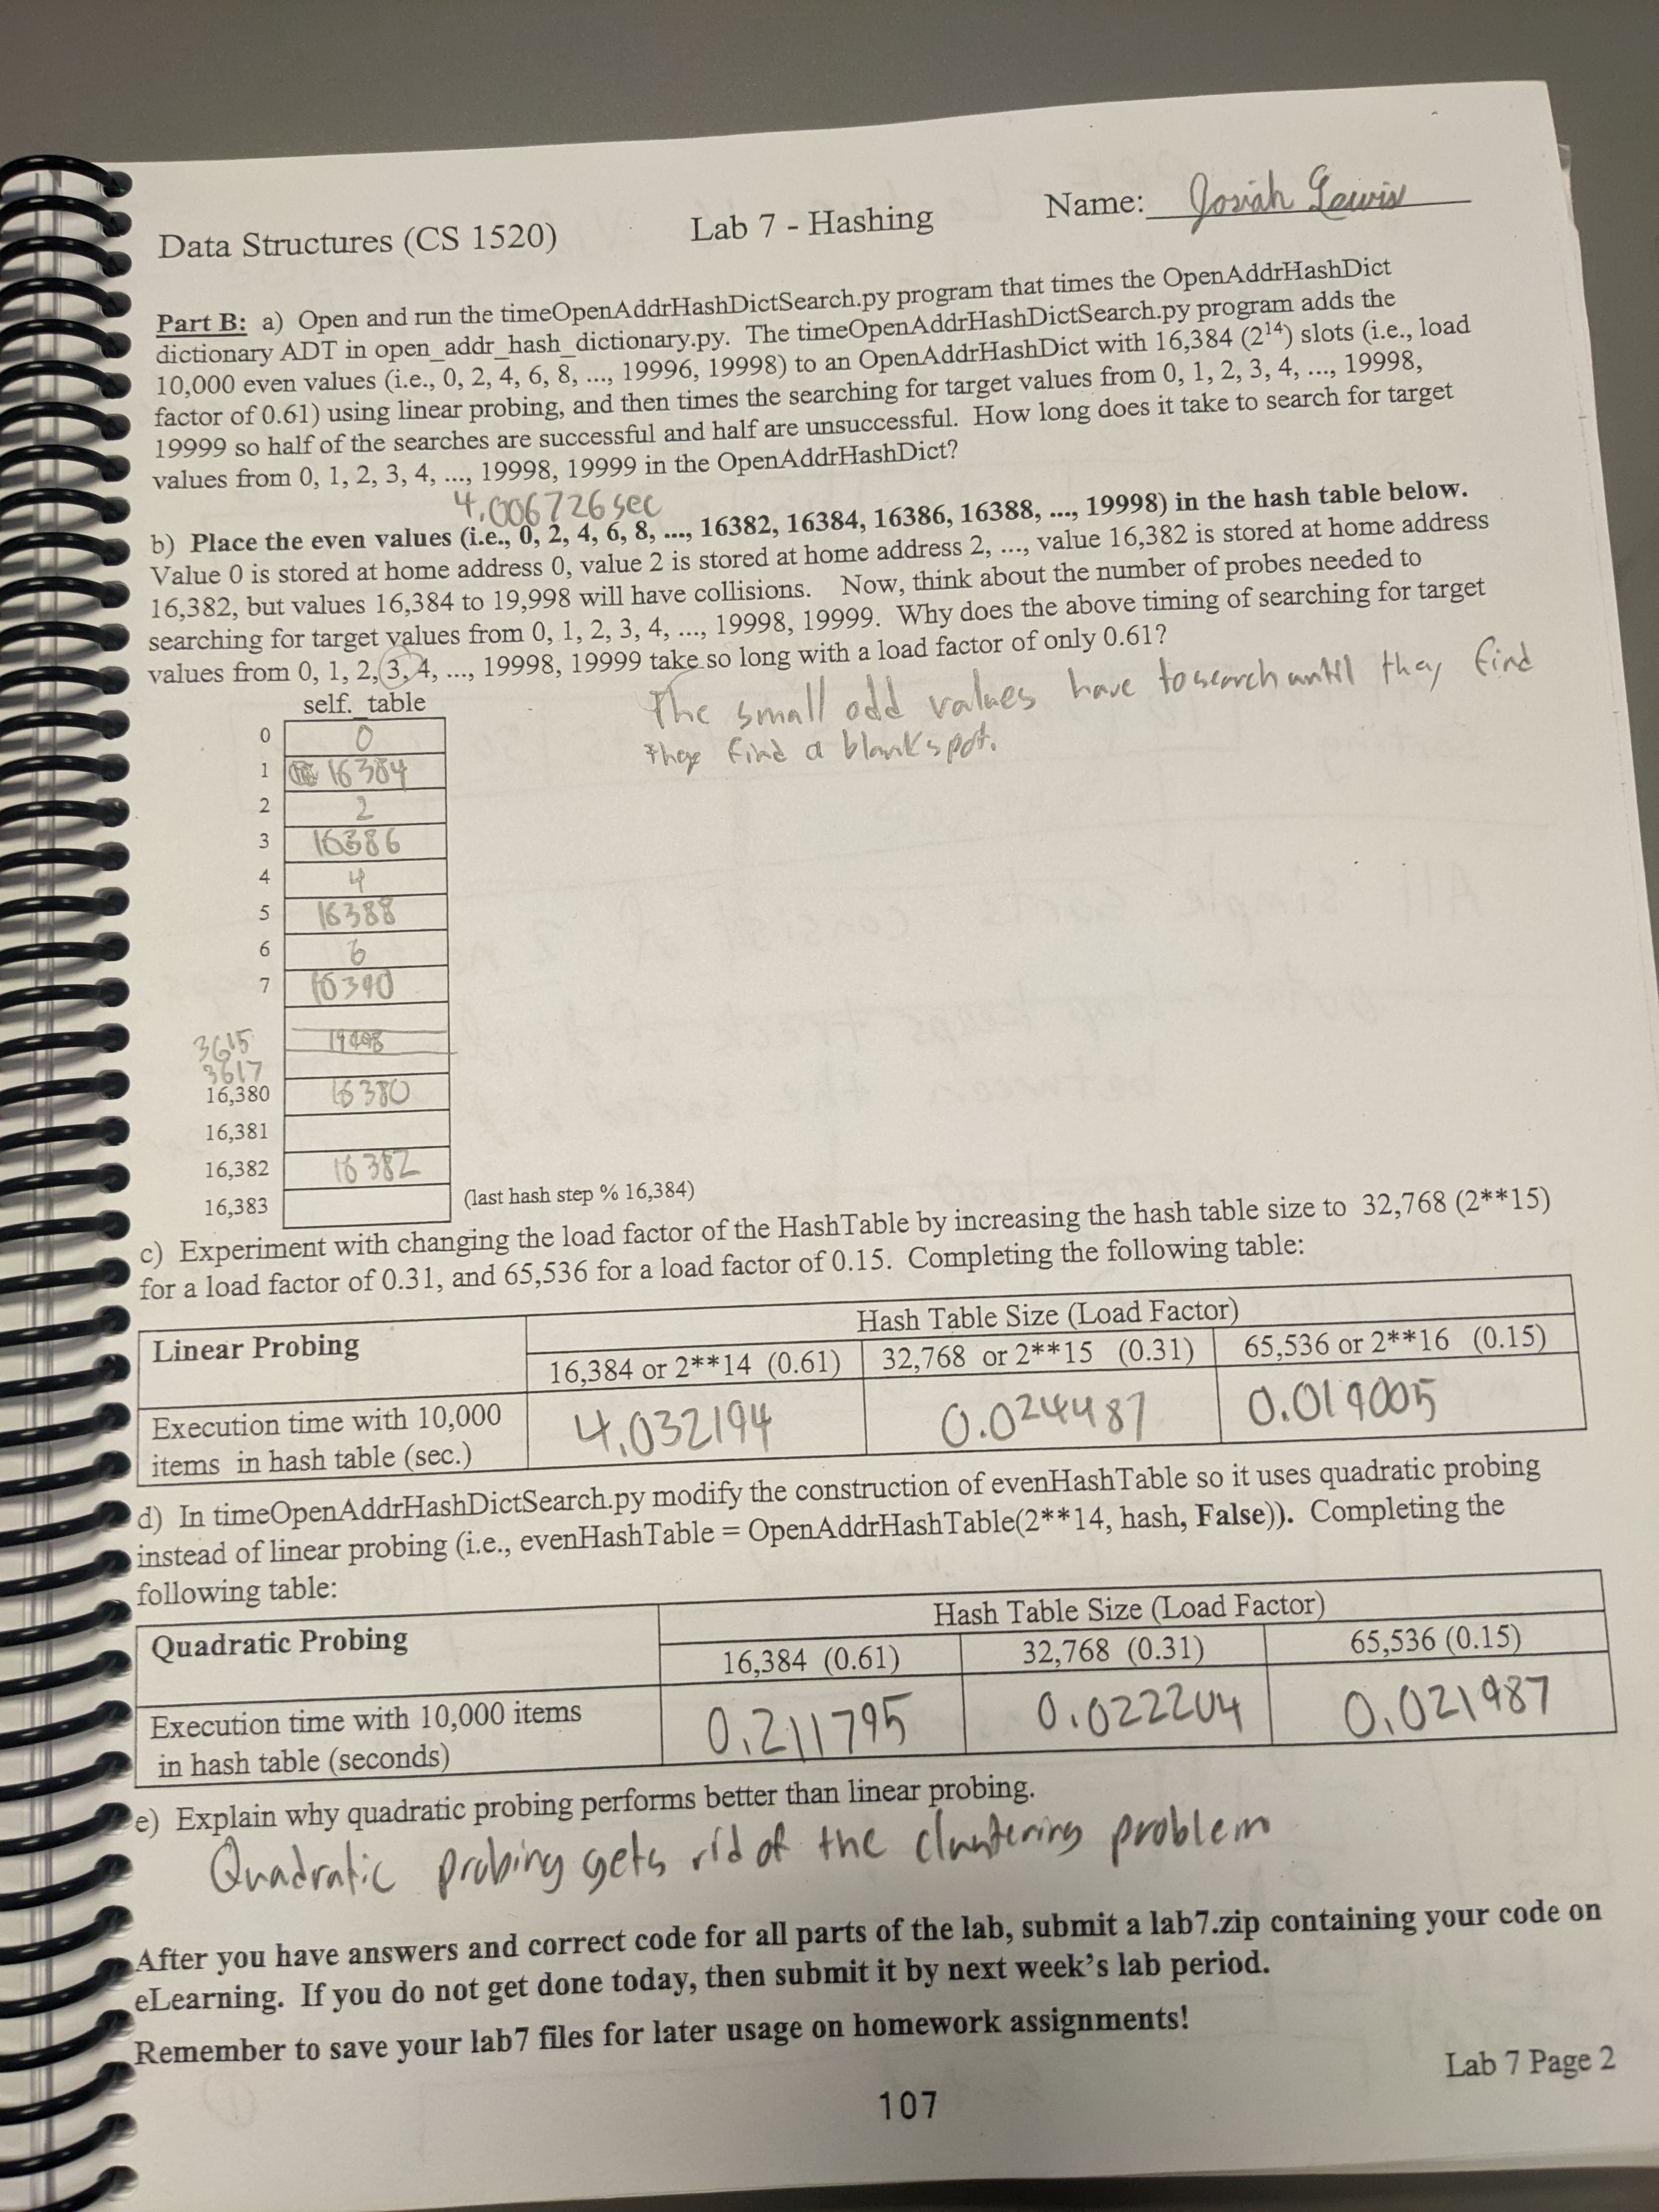 Data Structures (CS 1520) Lab 7 - Hashing Name: Josiah Lewis
Part B: a) Open and run the timeOpenAddrHashDictSearch.py program that times the OpenAddrHashDict
dictionary ADT in open_addr_hash_dictionary.py. The timeOpenAddrHashDictSearch.py program adds the
10,000 even values (i.e., 0, 2, 4, 6, 8, ..., 19996, 19998) to an OpenAddrHashDict with 16,384 (2^14) slots (i.e., load
factor of 0.61) using linear probing, and then times the searching for target values from 0, 1, 2, 3, 4, ..., 19998,
19999 so half of the searches are successful and half are unsuccessful. How long does it take to search for target
values from 0, 1, 2, 3, 4, ..., 19998, 19999 in the OpenAddrHashDict?
4.006726 sec
b) Place the even values (i.e., 0, 2, 4, 6, 8, ..., 16382, 16384, 16386, 16388, ..., 19998) in the hash table below.
Value 0 is stored at home address 0, value 2 is stored at home address 2, ..., value 16,382 is stored at home address
16,382, but values 16,384 to 19,998 will have collisions. Now, think about the number of probes needed to
searching for target values from 0, 1, 2, 3, 4, ..., 19998, 19999. Why does the above timing of searching for target
values from 0, 1, 2, 3, 4, ..., 19998, 19999 take so long with a load factor of only 0.61?
The small odd values have to search until they find
they find a blank spot.
self._table
0 0
1 16384
2 2
3 16386
4 4
5 16388
6 6
7 16390
3615
3617
16,380 16380
16,381
16,382 16382
16,383 (last hash step % 16,384)
c) Experiment with changing the load factor of the HashTable by increasing the hash table size to 32,768 (2**15)
for a load factor of 0.31, and 65,536 for a load factor of 0.15. Completing the following table:
Hash Table Size (Load Factor)
Linear Probing
16,384 or 2**14 (0.61) 32,768 or 2**15 (0.31) 65,536 or 2**16 (0.15)
Execution time with 10,000
items in hash table (sec.)
4.032194 0.024487 0.019005
d) In timeOpenAddrHashDictSearch.py modify the construction of evenHashTable so it uses quadratic probing
instead of linear probing (i.e., evenHashTable = OpenAddrHashTable(2**14, hash, False)). Completing the
following table:
Hash Table Size (Load Factor)
Quadratic Probing
16,384 (0.61) 32,768 (0.31) 65,536 (0.15)
Execution time with 10,000 items
in hash table (seconds)
0.211795 0.022204 0.021987
e) Explain why quadratic probing performs better than linear probing.
Quadratic probing gets rid of the clustering problem
After you have answers and correct code for all parts of the lab, submit a lab7.zip containing your code on
eLearning. If you do not get done today, then submit it by next week's lab period.
Remember to save your lab7 files for later usage on homework assignments!
Lab 7 Page 2
107